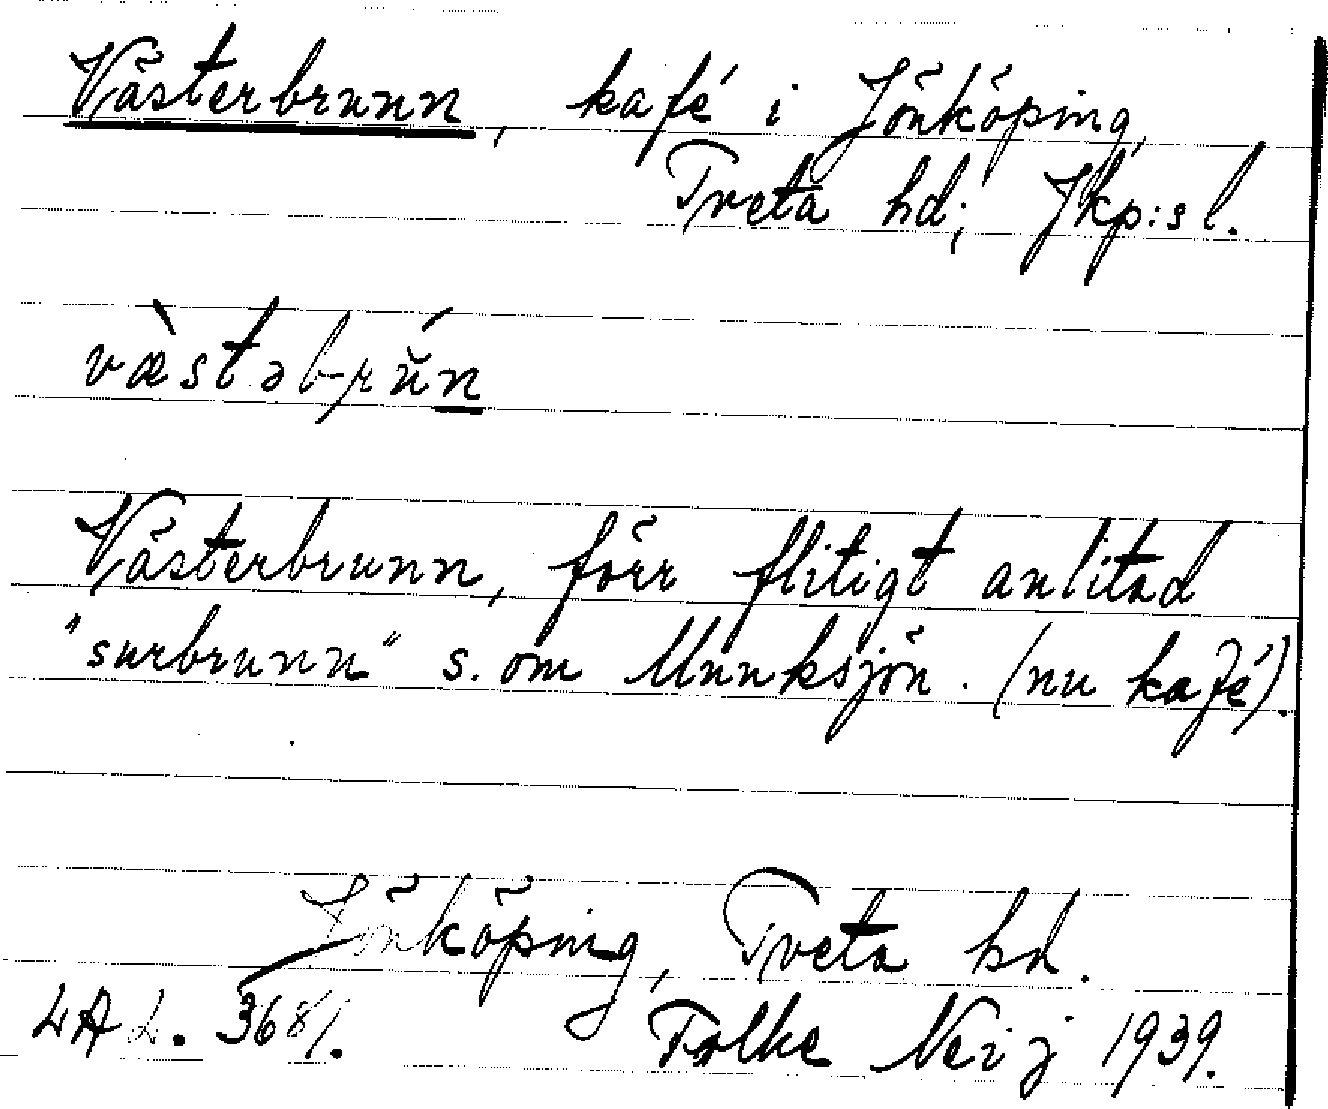 Västerbrunn, kafé i Jönköping,
Tveta hd; Jkp:s l.
væ̀stəbrŭ́n
Västerbrunn, förr flitigt anlitad
"surbrunn" s. om Munksjön. (nu kafé).
Jönköping, Tveta hd.
LAL. 3681. Folke Neij 1939.